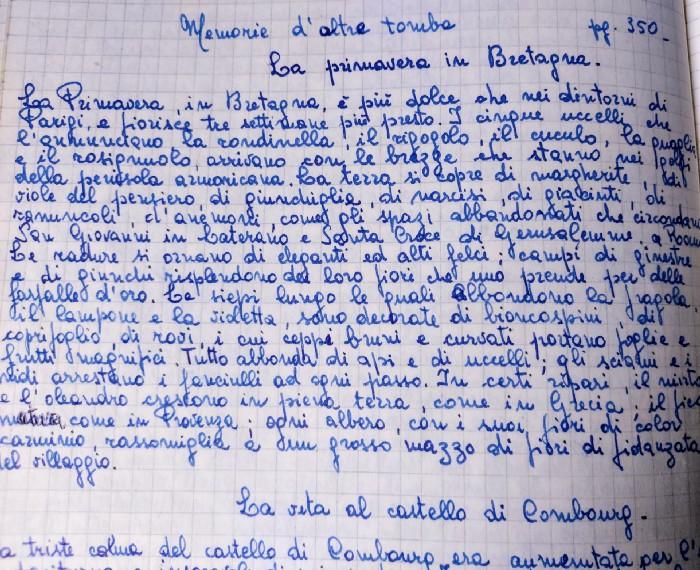 Memorie d'altre tombe pg. 350_
La primavera in Bretagna.
La Primavera, in Bretagna, è più dolce che nei dintorni di
Parigi, e fiorisce tre settimane più presto. I cinque uccelli che
l'annunciano la rondinella, il rigogolo, il cuculo, la quaglia
e il rosignuolo, arrivano con le brezze che stanno nei golfi
della penisola armoricana. La terra si copre di margherite, di
viole del pensiero, di giunchiglia, di narcisi, di giacinti, di
ranuncoli, d'anemoni, come gli spazi abbandonati che circondano
San Giovanni in Laterano e Santa Croce di Gerusalemme a Roma
Le radure si ornano di eleganti ed alti felci; campi di ginestre
e di giunchi risplendono del loro fiori che uno prende per delle
farfalle d'oro. Le siepi lungo le quali abbondono la fragola
il lampone e la violetta, sono decorate di biancospini di
caprifoglio, di rovi, i cui ceppi bruni e curvati portano foglie e
frutti magnifici. Tutto abbonda di api e di uccelli; gli sciami e i
nidi arrestano i fanciulli ad ogni passo. In certi ripari, il mirto
e l'oleandro crescono in piena terra, come in Grecia, il fico
matura come in Provenza; ogni albero, con i suoi fiori di color
carminio, rassomiglia è un grosso mazzo di fiori di fidanzata
del villaggio.
La vita al castello di Combourg.
a triste calma del castello di Combourg era aumentata per l'